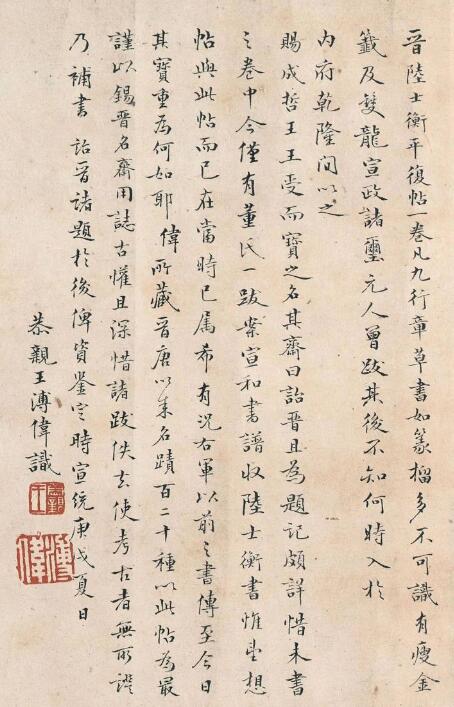 晉陸士衡平復帖一卷凡九行章草書如篆籀多不可識有瘦金
籤及雙龍宣政諸璽元人曾跋其後不知何時入於
內府乾隆間以之
賜成哲王王受而寶之名其齋曰詒晉且為題記頗詳惜未書
之卷中今僅有董氏一跋案宣和書譜收陸士衡書惟望想
帖與此帖而已在當時已属希有況右軍以前之書傳至今日
其寶重為何如耶 偉所藏晉唐以來名蹟百二十種以此帖為最
謹以錫晉名齋用誌古懽且深惜諸跋佚去使考古者無所證
乃補書 詒晉諸題於後俾資鑒定時宣統庚戌夏日
恭親王溥偉識
恭親王
溥偉